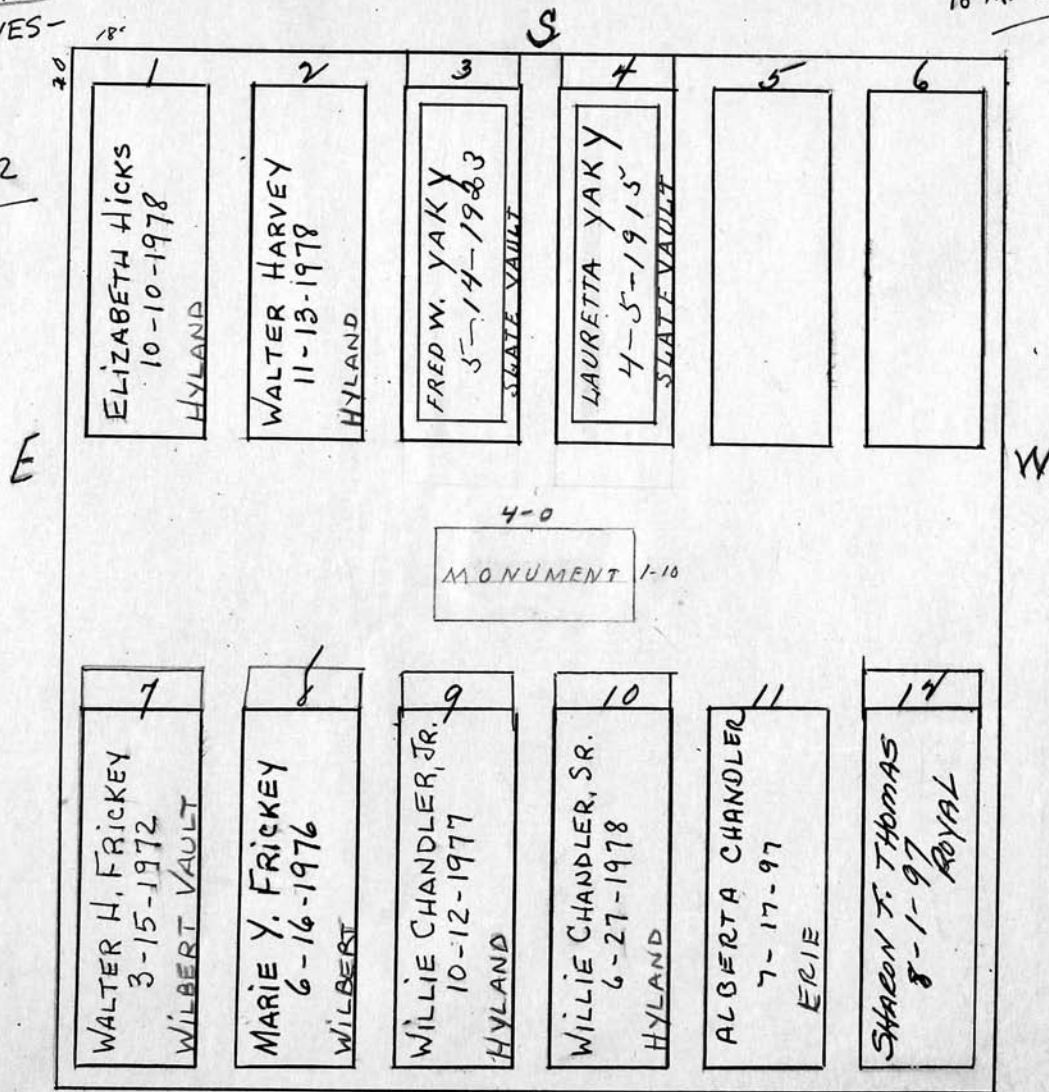 VES-
18"
S
20
2
E
W
1
ELIZABETH HICKS
10-10-1978
HYLAND
2
WALTER HARVEY
11-13-1978
HYLAND
3
FRED W. YAKY
5-14-1923
SLATE VAULT
4
LAURETTA YAKY
4-5-1915
SLATE VAULT
5
6
4-0
MONUMENT 1-10
7
WALTER H. FRICKEY
3-15-1972
WILBERT VAULT
8
MARIE Y. FRICKEY
6-16-1976
WILBERT
9
WILLIE CHANDLER, JR.
10-12-1977
HYLAND
10
WILLIE CHANDLER, SR.
6-27-1978
HYLAND
11
ALBERTA CHANDLER
7-17-97
ERIE
12
SHARON T. THOMAS
8-1-97
ROYAL